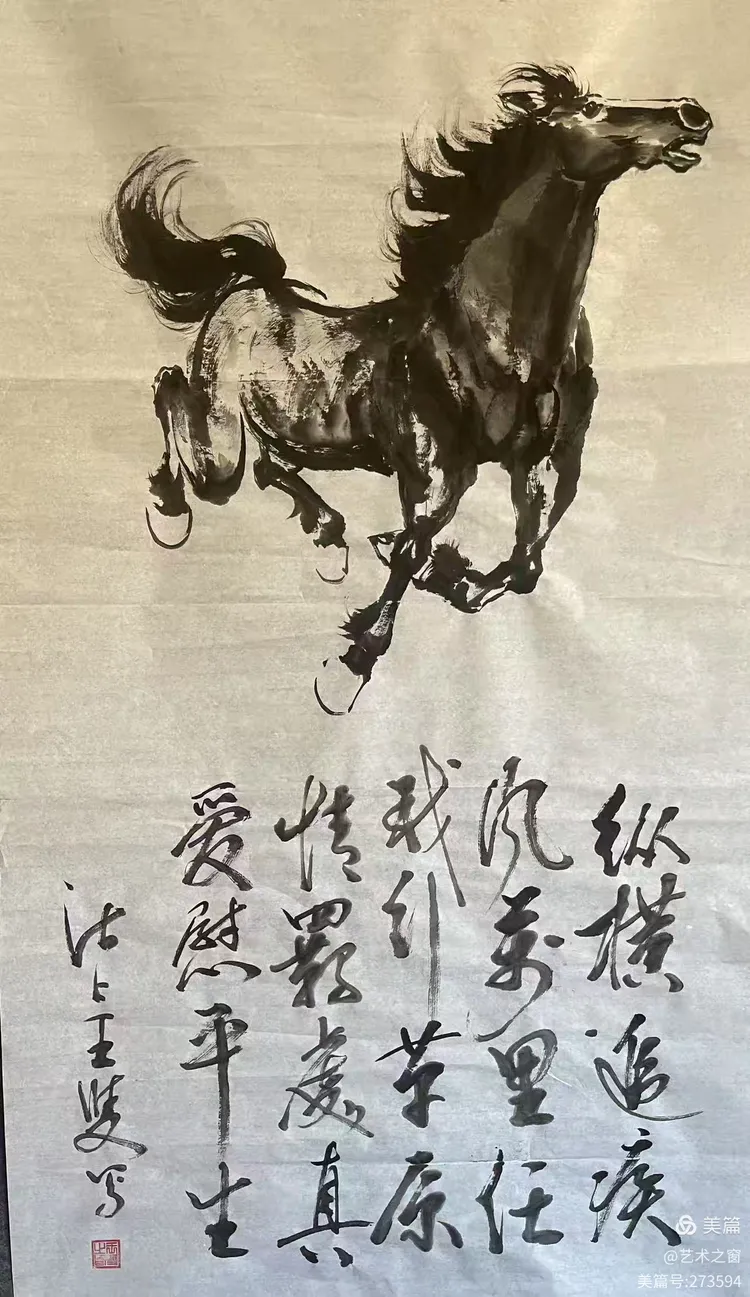 纵横追疾
风萬里任
我行草原
情羁處真
爱慰平生
沽上王写
美篇
@艺术之窗
美篇号:273594